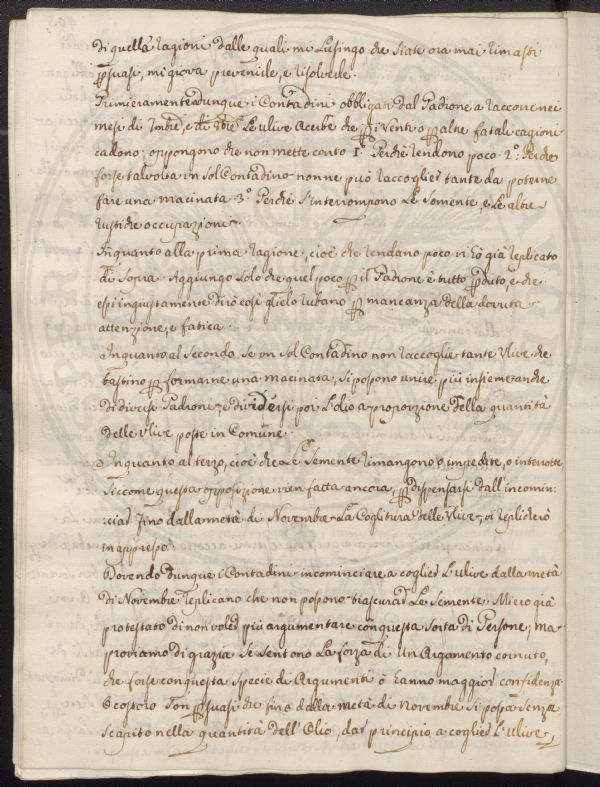 di quella ragioni dalle quali mi lusingo che siate ora mai rimasti
p̱suasi, mi giova prevenirle, e risolverle.
Primieramente dunque i Contadini obbligati dal Padrone a raccorre nei
mesi di 7mbre, e di 8bre L'ulive Acerbe che p̱ i Venti o p̱ altre fatali cagioni
cadono; oppongono che non mette conto 1.º Perche rendono poco 2.º Perche
forse talvolta un sol Contadino non ne può raccoglier tante da poterne
fare una macinata 3.º Perche s'interrompono Le Semente, e Le altre
rustiche occupazioni.
In quanto alla prima ragione, cioè che rendano poco vi hò già replicato
di sopra. Aggiungo solo che quel poco p̱ il Padrone è tutto p̱duto, e che
essi ingiustamente dirò così glielo rubano p̱ mancanza della dovuta
attenzione, e fatica.
In quanto al Secondo, Se un sol Contadino non raccoglie tante Ulive che
bastino p̱ formarne una macinata, si possono unire più insieme anche
di diversi Padroni, e dividersi poi L'olio a proporzione della quantità
delle Ulive poste in Comune.
In quanto al terzo, cioè che Le Semente rimangono o impedite, o interrotte,
siccome questa opposizione vien fatta ancora p̱ dispensarsi dall'incomin:
ciar fino dalla metà di Novembre La Coglitura delle Ulive, vi replicherò
in appresso.
Dovendo dunque i Contadini incominciare a coglier L'ulive dalla metà
di Novembre replicano che non possono trascurar Le Semente. Mi ero già
protestato di non voler più argumentare con questa sorta di Persone; ma
proviamo di grazia se sentono La forza di un Argomento cornuto,
che forse con questa specie di Argumenti ò hanno maggior confidenza.
O costoro son p̱suasi che fino dalla metà di Novembre si possa senza
scapito nella quantità dell'Olio, dar principio a coglier L'ulive,